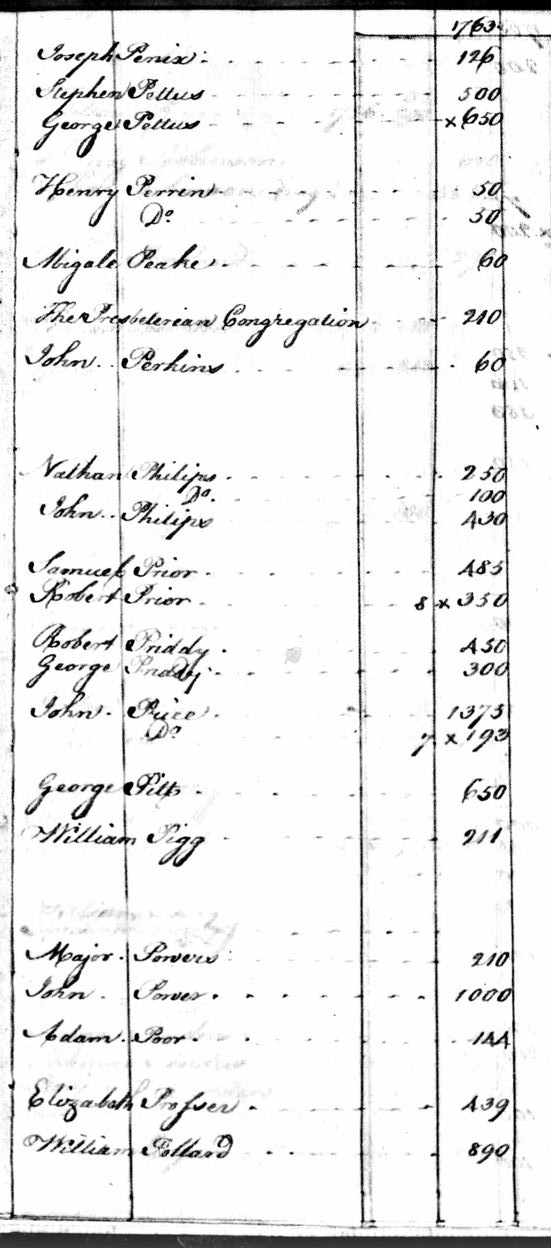 1763
Joseph Penix 126
Stephen Pettus 500
George Pettus x 650
Henry Perrin 50
Do. 50
Abigale Peake 60
The Presbeterean Congregation 210
John Perkins 60
Nathan Philips 250
Do. 100
John Philips 430
Samuel Prior 485
Robert Prior 8 x 350
Robert Priddy 450
George Priddy 300
John Price 1375
Do. 7 x 193
George Pitts 650
William Pigg 211
Major Powers 210
John Power 1000
Adam Poor 144
Elizabeth Prosser 439
William Pollard 890